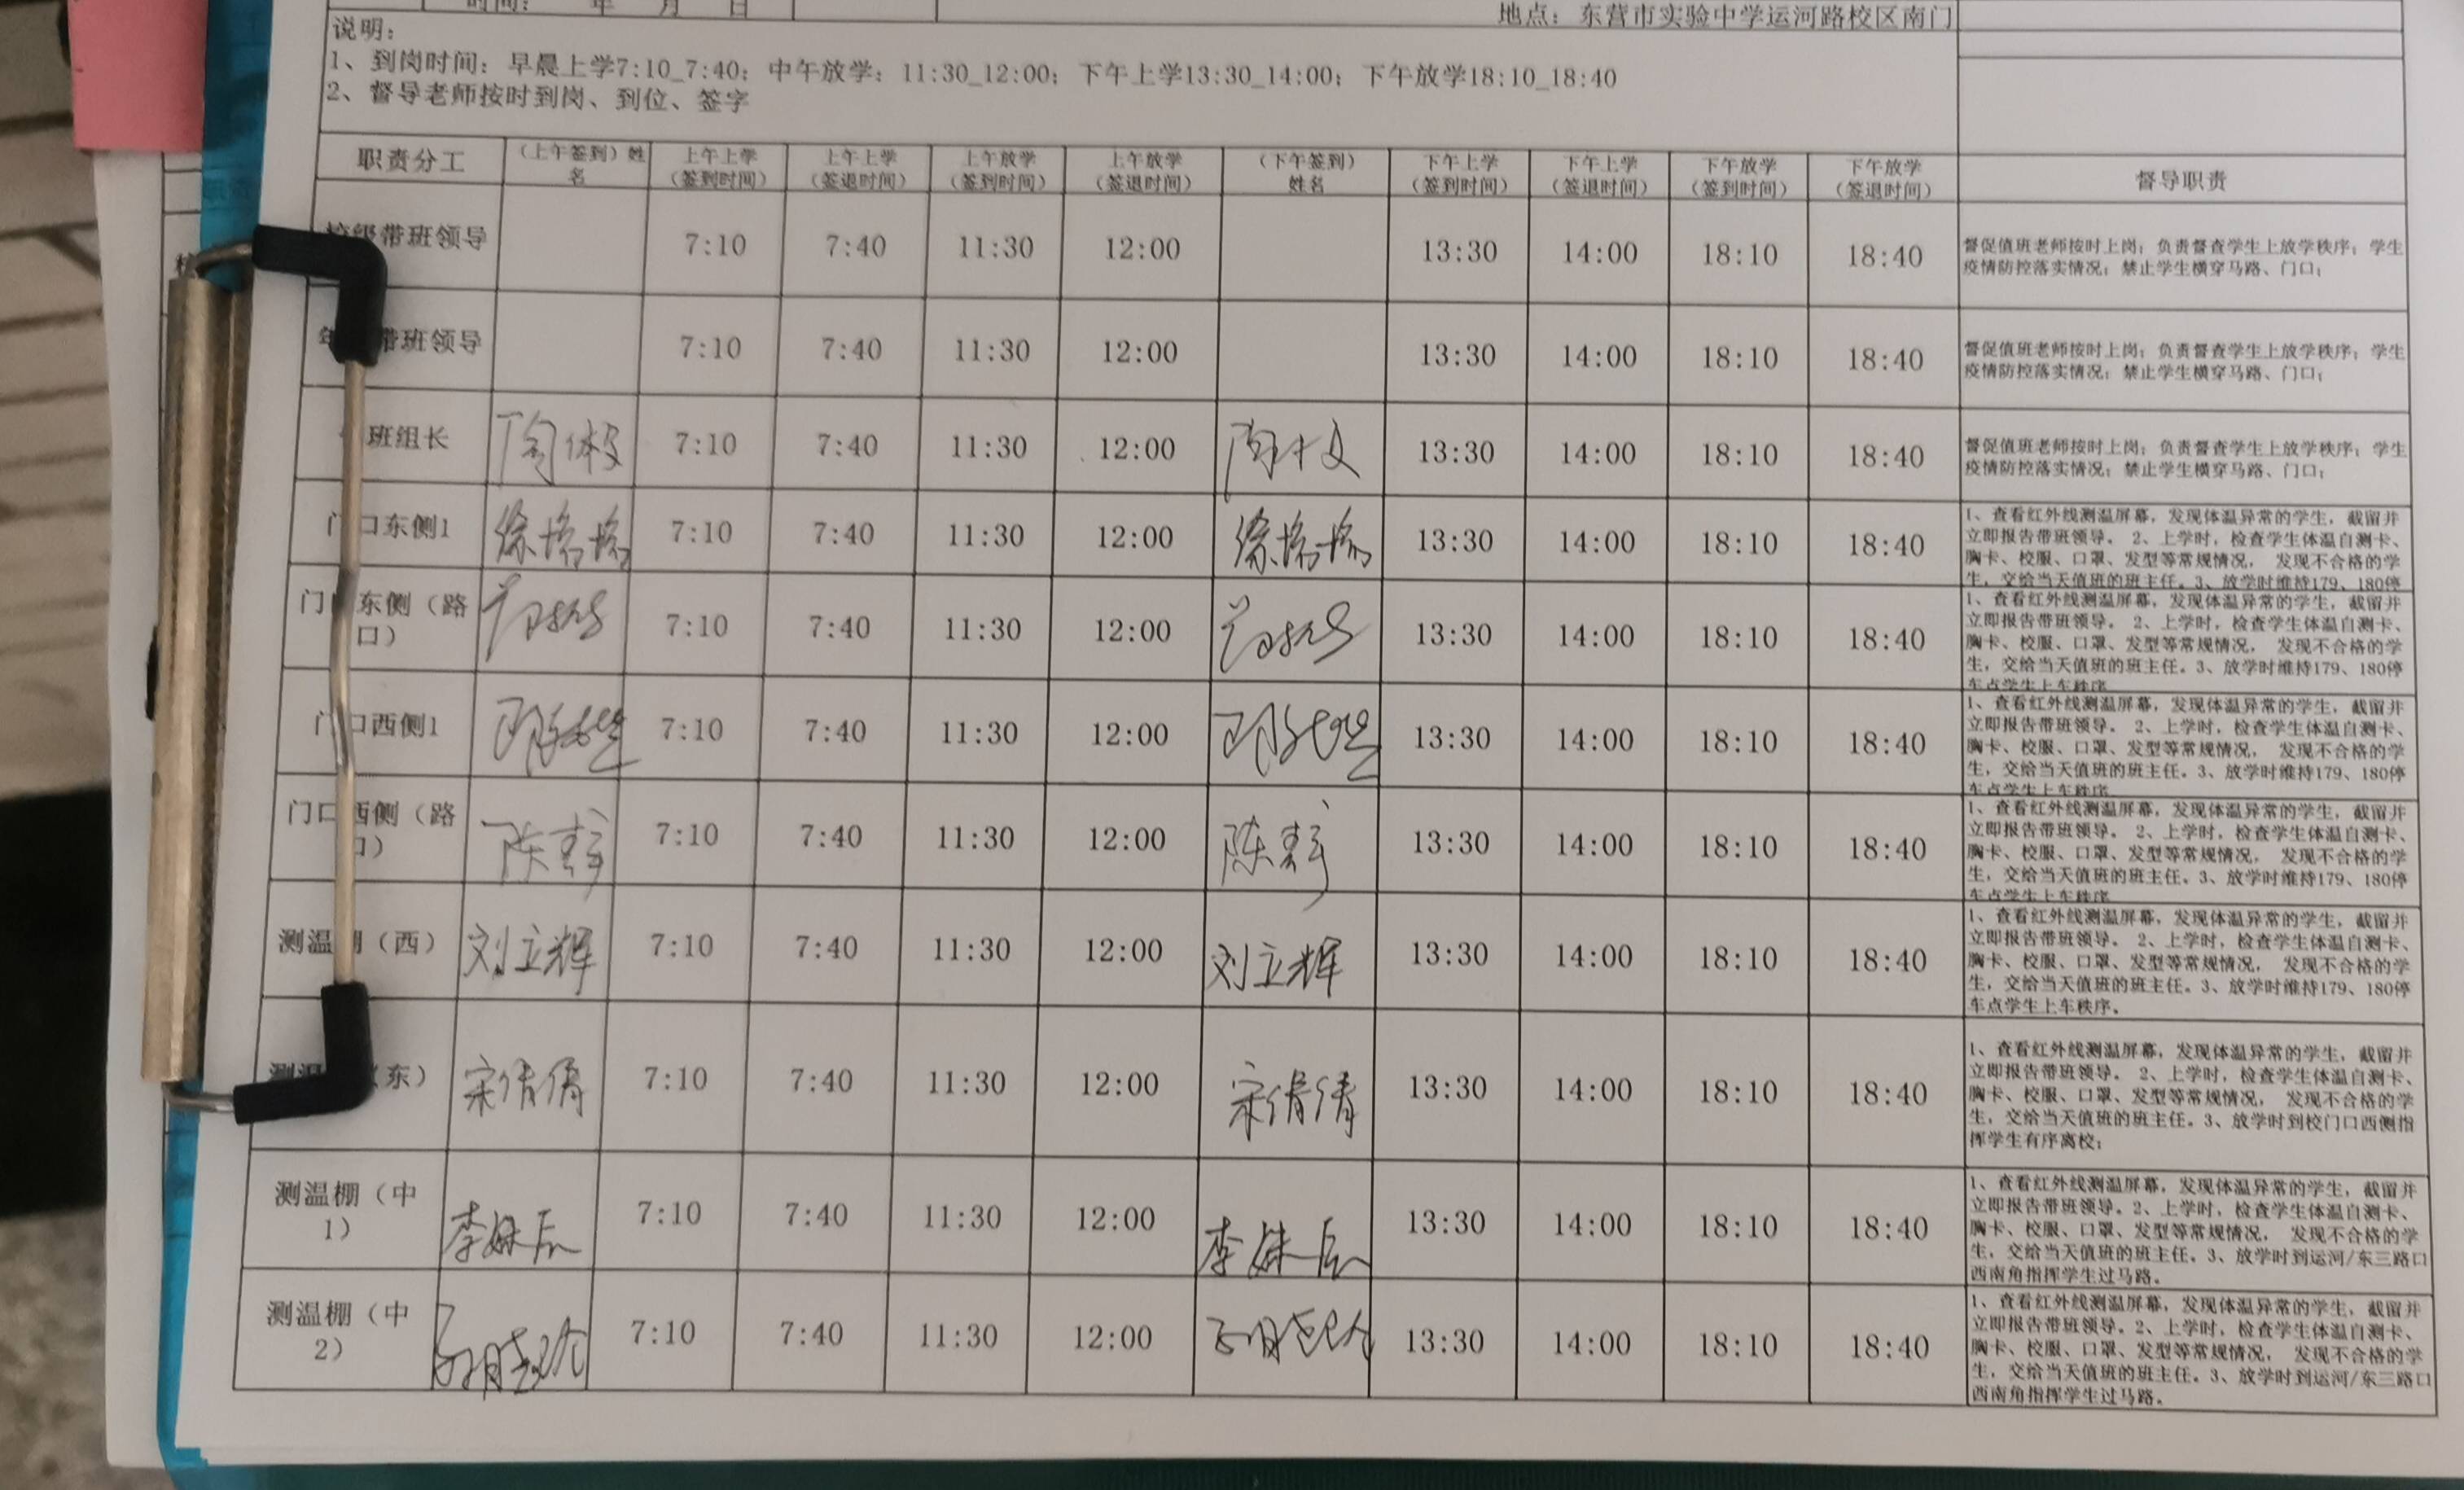 时间： 年 月 日
地点：东营市实验中学运河路校区南门
说明：
1、到岗时间：早晨上学7:10_7:40；中午放学：11:30_12:00；下午上学13:30_14:00；下午放学18:10_18:40
2、督导老师按时到岗、到位、签字
职责分工 （上午签到）姓名 上午上学（签到时间） 上午上学（签退时间） 上午放学（签到时间） 上午放学（签退时间） （下午签到）姓名 下午上学（签到时间） 下午上学（签退时间） 下午放学（签到时间） 下午放学（签退时间） 督导职责
级带班领导 7:10 7:40 11:30 12:00 13:30 14:00 18:10 18:40
督促值班老师按时上岗；负责督查学生上放学秩序；学生
疫情防控落实情况；禁止学生横穿马路、门口；
带班领导 7:10 7:40 11:30 12:00 13:30 14:00 18:10 18:40
督促值班老师按时上岗；负责督查学生上放学秩序；学生
疫情防控落实情况；禁止学生横穿马路、门口；
班组长 7:10 7:40 11:30 12:00 13:30 14:00 18:10 18:40
督促值班老师按时上岗；负责督查学生上放学秩序；学生
疫情防控落实情况；禁止学生横穿马路、门口；
门口东侧1 7:10 7:40 11:30 12:00 13:30 14:00 18:10 18:40
1、查看红外线测温屏幕，发现体温异常的学生，截留并
立即报告带班领导。 2、上学时，检查学生体温自测卡、
胸卡、校服、口罩、发型等常规情况， 发现不合格的学
生，交给当天值班的班主任。3、放学时维持179、180停
门口东侧（路口） 7:10 7:40 11:30 12:00 13:30 14:00 18:10 18:40
1、查看红外线测温屏幕，发现体温异常的学生，截留并
立即报告带班领导。 2、上学时，检查学生体温自测卡、
胸卡、校服、口罩、发型等常规情况， 发现不合格的学
生，交给当天值班的班主任。3、放学时维持179、180停
车点学生上车秩序
门口西侧1 7:10 7:40 11:30 12:00 13:30 14:00 18:10 18:40
1、查看红外线测温屏幕，发现体温异常的学生，截留并
立即报告带班领导。 2、上学时，检查学生体温自测卡、
胸卡、校服、口罩、发型等常规情况， 发现不合格的学
生，交给当天值班的班主任。3、放学时维持179、180停
车点学生上车秩序
门口西侧（路口） 7:10 7:40 11:30 12:00 13:30 14:00 18:10 18:40
1、查看红外线测温屏幕，发现体温异常的学生，截留并
立即报告带班领导。 2、上学时，检查学生体温自测卡、
胸卡、校服、口罩、发型等常规情况， 发现不合格的学
生，交给当天值班的班主任。3、放学时维持179、180停
车点学生上车秩序
测温棚（西） 刘立辉 7:10 7:40 11:30 12:00 刘立辉 13:30 14:00 18:10 18:40
1、查看红外线测温屏幕，发现体温异常的学生，截留并
立即报告带班领导。 2、上学时，检查学生体温自测卡、
胸卡、校服、口罩、发型等常规情况， 发现不合格的学
生，交给当天值班的班主任。3、放学时维持179、180停
车点学生上车秩序。
测温（东） 宋倩倩 7:10 7:40 11:30 12:00 宋倩倩 13:30 14:00 18:10 18:40
1、查看红外线测温屏幕，发现体温异常的学生，截留并
立即报告带班领导。 2、上学时，检查学生体温自测卡、
胸卡、校服、口罩、发型等常规情况， 发现不合格的学
生，交给当天值班的班主任。3、放学时到校门口西侧指
挥学生有序离校；
测温棚（中1） 7:10 7:40 11:30 12:00 13:30 14:00 18:10 18:40
1、查看红外线测温屏幕，发现体温异常的学生，截留并
立即报告带班领导。2、上学时，检查学生体温自测卡、
胸卡、校服、口罩、发型等常规情况， 发现不合格的学
生，交给当天值班的班主任。3、放学时到运河/东三路口
西南角指挥学生过马路。
测温棚（中2） 7:10 7:40 11:30 12:00 13:30 14:00 18:10 18:40
1、查看红外线测温屏幕，发现体温异常的学生，截留并
立即报告带班领导。2、上学时，检查学生体温自测卡、
胸卡、校服、口罩、发型等常规情况， 发现不合格的学
生，交给当天值班的班主任。3、放学时到运河/东三路口
西南角指挥学生过马路。